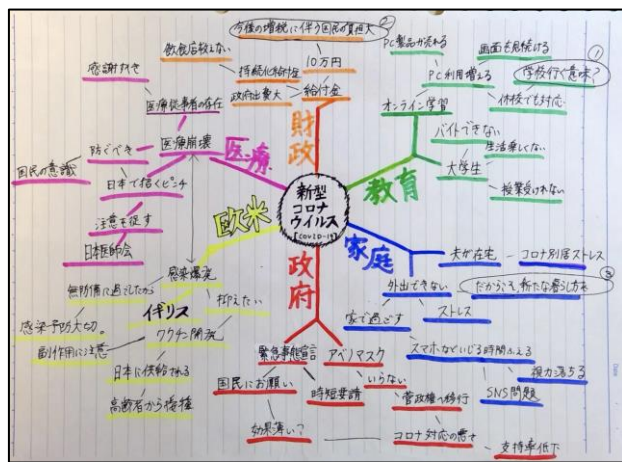 新型
コロナ
ウイルス
[COVID-19]
財政
給付金
10万円
今後の増税に伴う国民の負担大
②
持続化給付金
飲食店救えない
政府出費大
教育
オンライン学習
PC利用増える
PC製品が売れる
画面を見続ける
学校行く意味?
①
休校でも対応
大学生
バイトできない
生活楽しくない
授業受けれない
家庭
夫が在宅
コロナ別居ストレス
外出できない
だからこそ、新たな暮らし方を
③
ストレス
家で過ごす
スマホなどいじる時間ふえる
視力落ちる
SNS問題
政府
緊急事態宣言
アベノマスク
いらない
国民にお願い
時短要請
効果薄い?
菅政権へ移行
コロナ対応の悪さ
支持率低下
欧米
感染爆発
無防備に過ごしたから
感染予防大切。
抑えたい
イギリス
ワクチン開発
副作用に注意
日本に供給される
高齢者から接種
医療
医療崩壊
医療従事者の存在
感謝すべき
防ぐべき
国民の意識
日本で招くピンチ
注意を促す
日本医師会